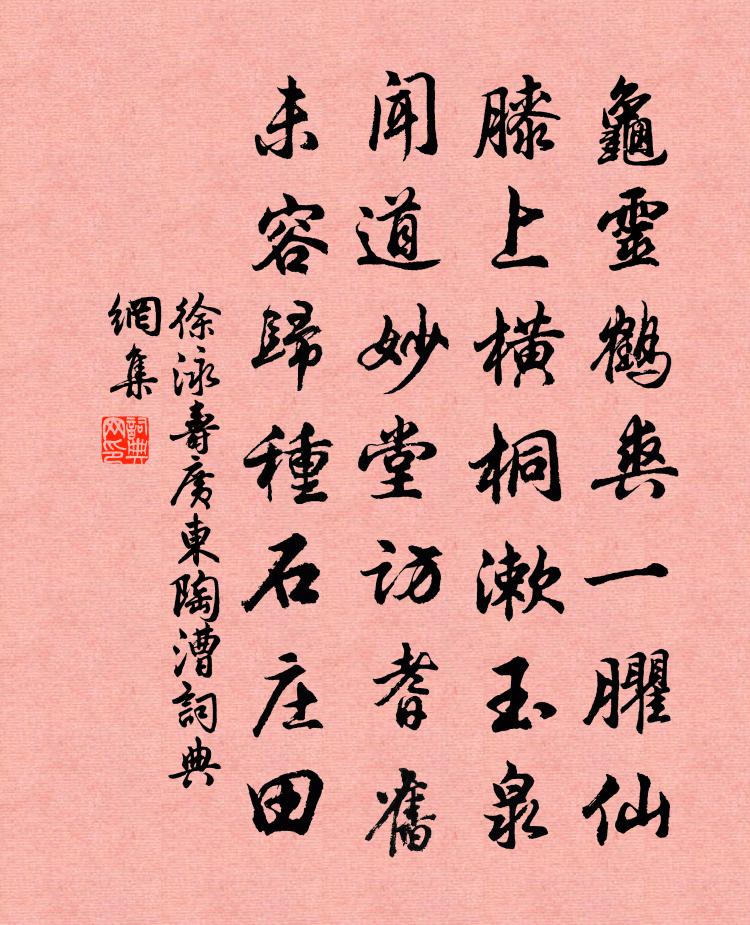 龜靈鶴爽一臞仙
膝上橫桐漱玉泉
聞道妙堂訪耆舊
未容歸種石庄田
徐泳壽廣東陶漕詞典
網集
詞典
网印